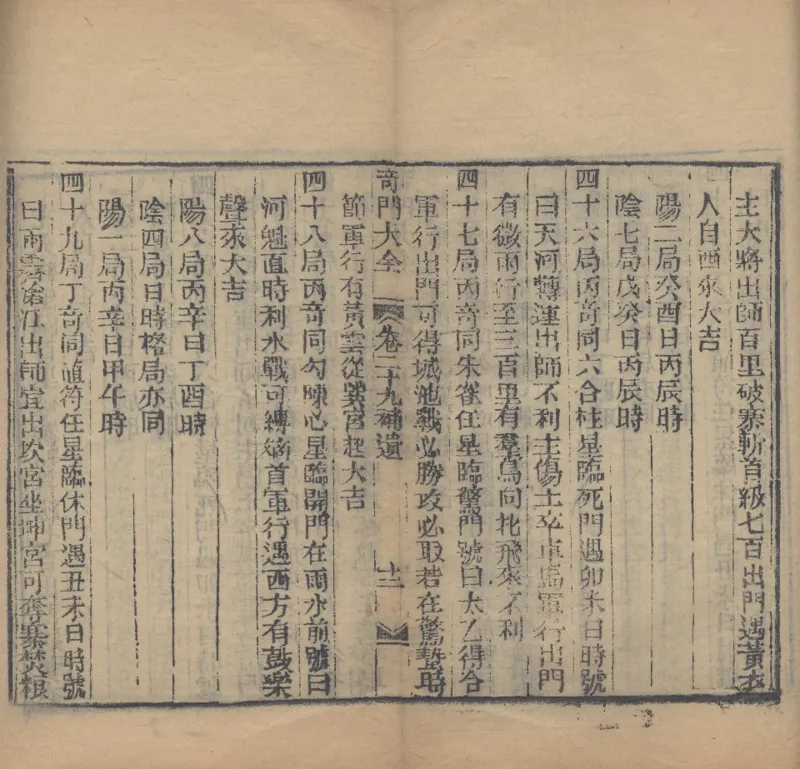 主大將出師百里破寨斬首級七百出門遇黃衣
人自酉來大吉
陽二局癸酉日丙辰時
陰七局戊癸日丙辰時
四十六局丙奇同六合柱星臨死門遇卯未日時號
曰天河轉運出師不利主傷士卒車馬軍行出門
有微雨行至三百里有羣鳥向北飛來不利
四十七局丙奇同朱雀任星臨驚門號曰太乙得合
軍行出門可得城池戰必勝攻必取若在驚蟄時
節軍行有黃雲從巽宮起大吉
奇門大全 卷二十九補遺 十二
四十八局丙奇同勾陳心星臨開門在雨水前號曰
河魁直時利水戰可縛酋首軍行遇西方有鼓樂
聲來大吉
陽八局丙辛日丁酉時
陰四局日時格局亦同
陽一局丙辛日甲午時
四十九局丁奇同直符任星臨休門遇丑未日時號
曰雨露滄江出師宜出坎宮坐坤宮可奪寨焚粮